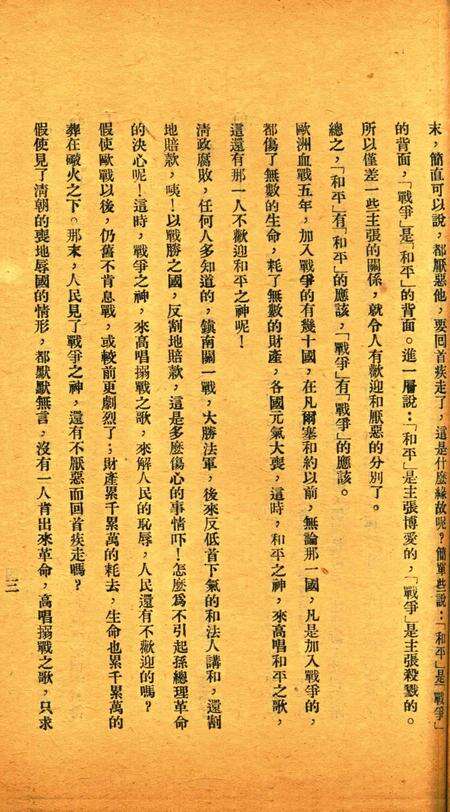 末，簡直可以說，都厭惡他，要回首疾走了，這是什麼緣故呢？簡單些說：「和平」是「戰爭」
的背面，「戰爭」是「和平」的背面。進一層說：「和平」是主張博愛的，「戰爭」是主張殺戮的。
所以僅差一些主張的關係，就令人有歡迎和厭惡的分別了。
總之，「和平」有「和平」的應該，「戰爭」有「戰爭」的應該。
歐洲血戰五年，加入戰爭的有幾十國，在凡爾塞和約以前，無論那一國，凡是加入戰爭的，
都傷了無數的生命，耗了無數的財產，各國元氣大喪，這時，和平之神，來高唱和平之歌，
這還有那一人不歡迎和平之神呢！
清政腐敗，任何人多知道的，鎮南關一戰，大勝法軍，後來反低首下氣的和法人講和，還割
地賠款，咦！以戰勝之國，反割地賠款，這是多麼傷心的事情吓！怎麼爲不引起孫總理革命
的決心呢！這時，戰爭之神，來高唱搦戰之歌，來解人民的恥辱，人民還有不歡迎的嗎？
假使歐戰以後，仍舊不肯息戰，或較前更劇烈了；財產累千累萬的耗去，生命也累千累萬的
葬在礮火之下。那末，人民見了戰爭之神，還有不厭惡而回首疾走嗎？
假使見了清朝的喪地辱國的情形，都默默無言，沒有一人肯出來革命，高唱搦戰之歌，只求
三